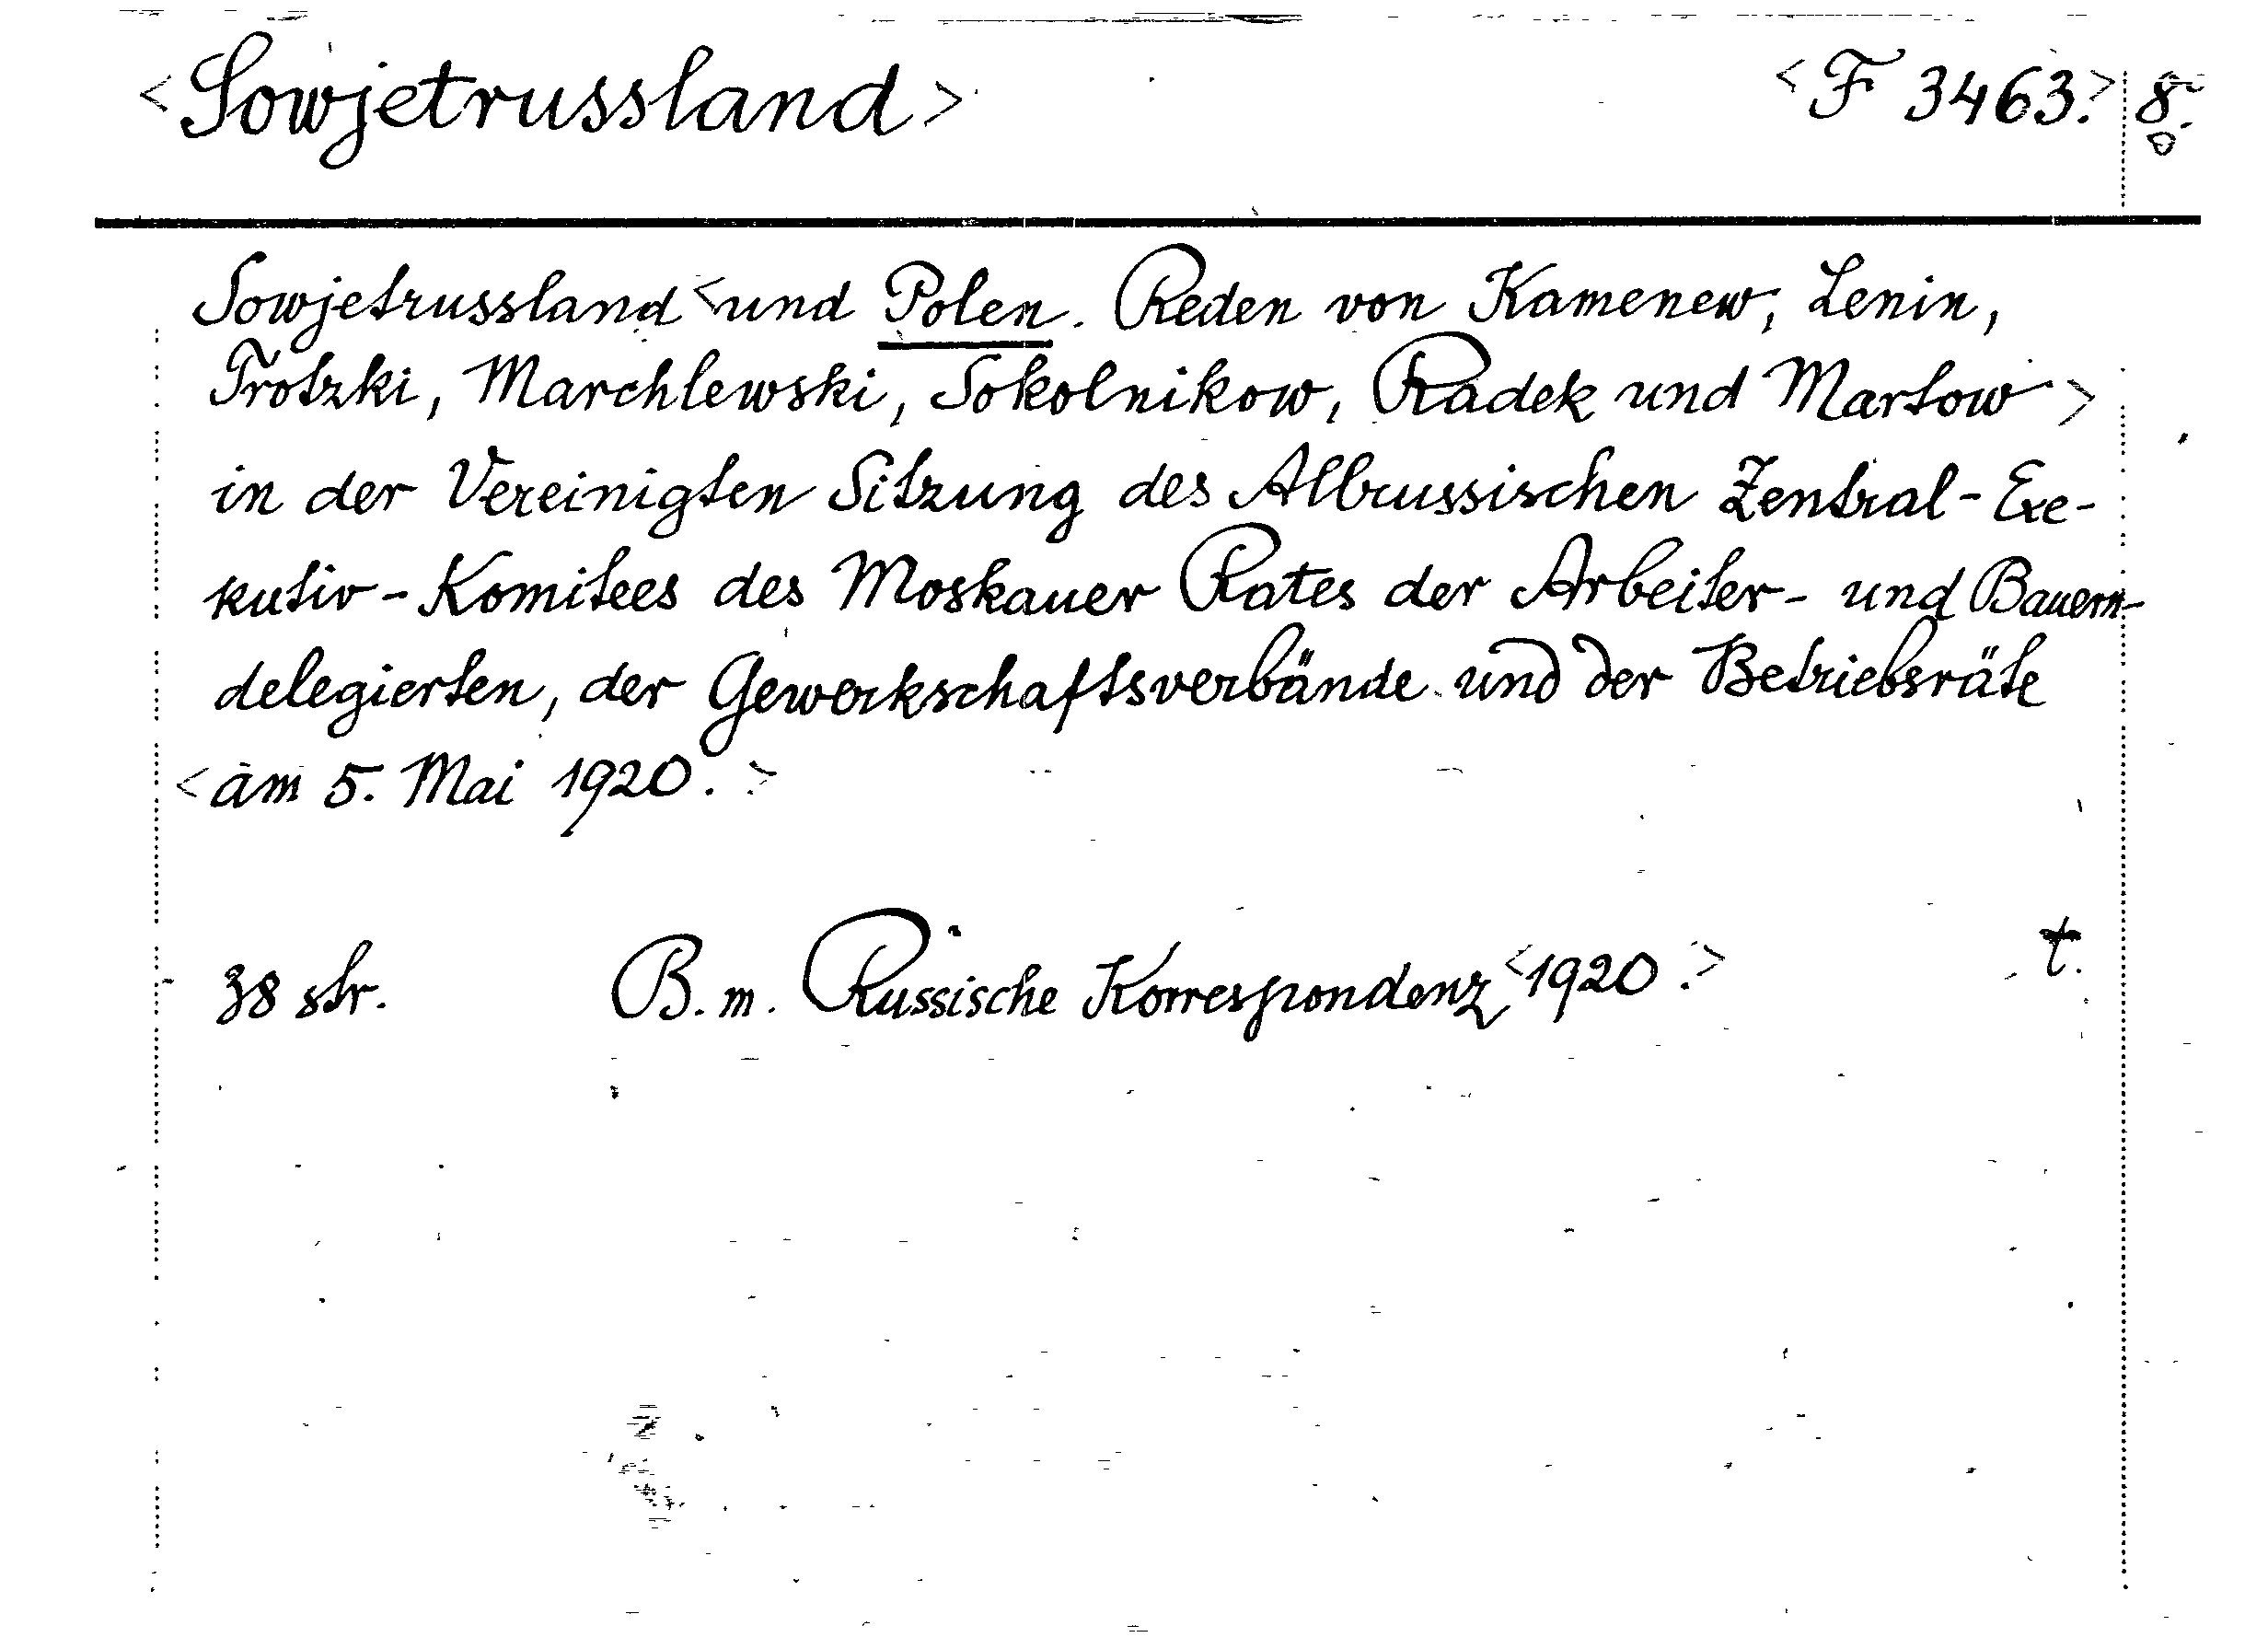 <Sowjetrussland> <F 3463.> 8.°
Sowjetrussland <und Polen. Reden von Kamenew, Lenin,
Trotzki, Marchlewski, Sokolnikow, Radek und Martow>
in der Vereinigten Sitzung des Allrussischen Zentral-Exe-
kutiv-Komitees des Moskauer Rates der Arbeiter- und Bauern-
delegierten, der Gewerkschaftsverbände und der Betriebsräte
<am 5. Mai 1920.>
38 str. B. m. Russische Korrespondenz <1920.> t.